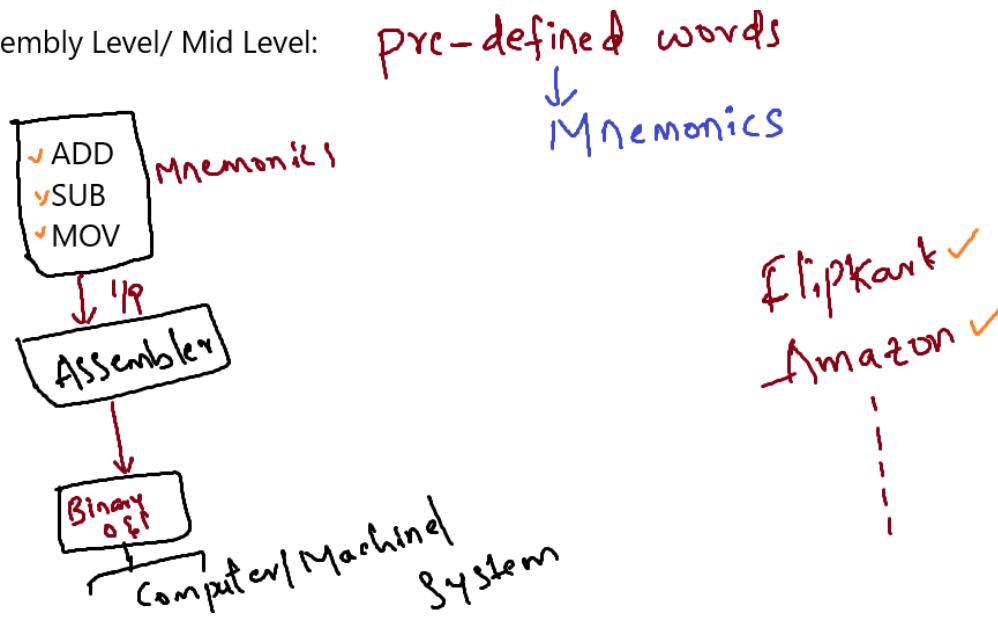 embly Level/ Mid Level:
pre-defined words
Mnemonics
ADD
SUB
MOV
Mnemonics
I/P
Assembler
Binary
0 & 1
Computer/Machine/
System
Flipkart
Amazon